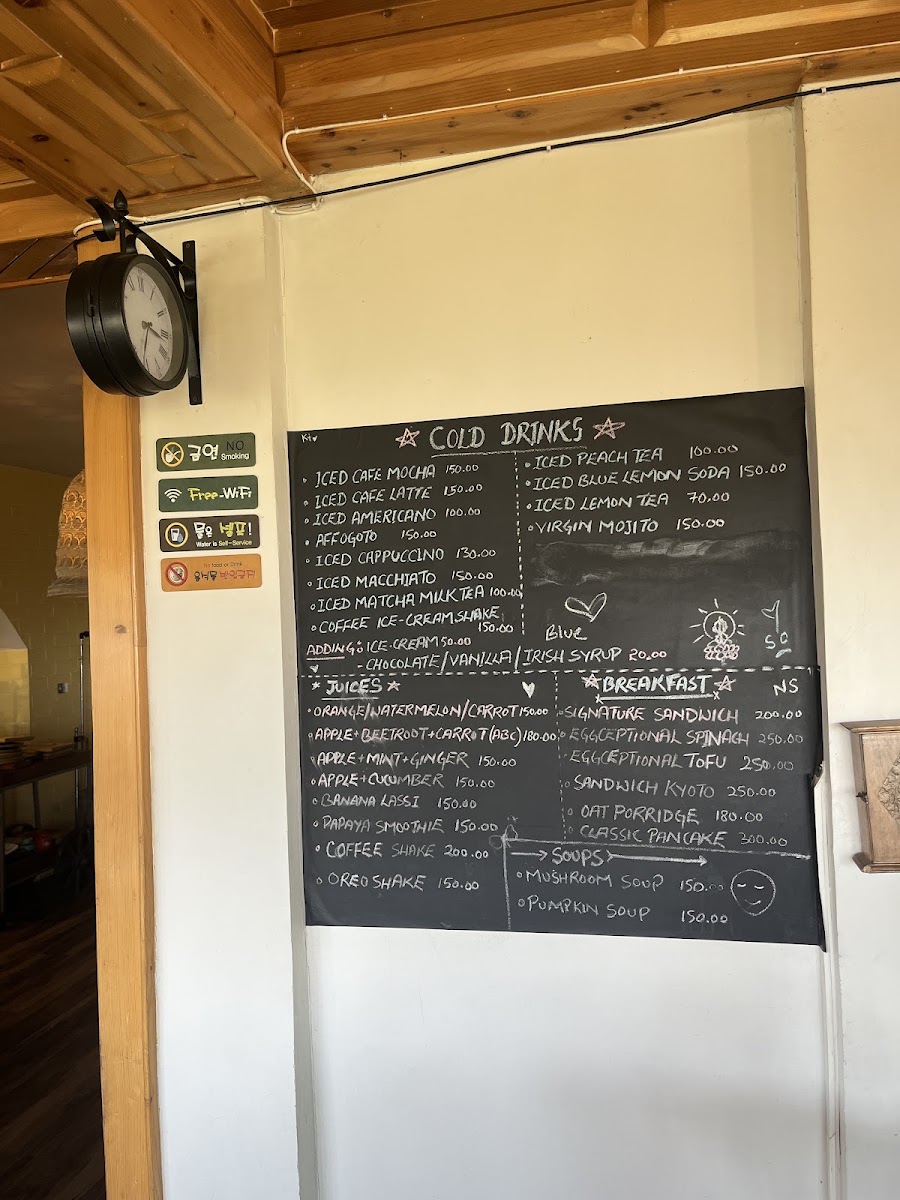 금연 NO
Smoking
Free-WiFi
물은 셀프!
Water is Self-Service
No food or Drink
☆ COLD DRINKS ☆
ICED CAFE MOCHA 150.00
ICED CAFE LATTE 150.00
ICED AMERICANO 100.00
AFFOGOTO 150.00
ICED CAPPUCCINO 130.00
ICED MACCHIATO 150.00
ICED MATCHA MILK TEA 100.00
COFFEE ICE-CREAM SHAKE
150.00
ICED PEACH TEA 100.00
ICED BLUE LEMON SODA 150.00
ICED LEMON TEA 70.00
VIRGIN MOJITO 150.00
Blue
ADDING: ICE-CREAM 50.00
- CHOCOLATE/VANILLA/IRISH SYRUP 20.00
* JUICES *
ORANGE/WATERMELON/CARROT 150.00
APPLE+BEETROOT+CARROT(ABC) 180.00
APPLE+MINT+GINGER 150.00
APPLE+CUCUMBER 150.00
BANANA LASSI 150.00
PAPAYA SMOOTHIE 150.00
COFFEE SHAKE 200.00
OREO SHAKE 150.00
☆ BREAKFAST ☆ NS
SIGNATURE SANDWICH 200.00
EGGCEPTIONAL SPINACH 250.00
EGGCEPTIONAL TOFU 250.00
SANDWICH KYOTO 250.00
OAT PORRIDGE 180.00
CLASSIC PANCAKE 300.00
SOUPS
MUSHROOM SOUP 150.00
PUMPKIN SOUP 150.00